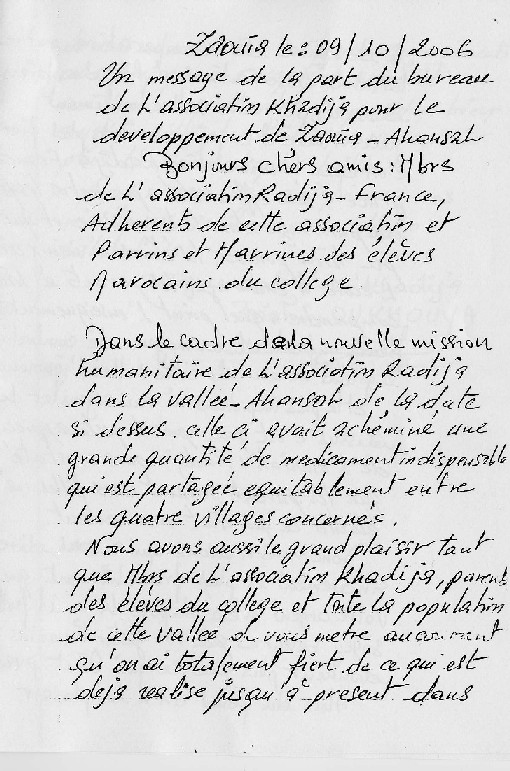 Zaouia le : 09/10/2006
Un message de la part du bureau
de L'association Khadija pour le
developpement de Zaouia - Ahansal
Bonjours chers amis : Mbrs
de L'association Radija - France,
Adherents de cette association et
Parrins et Marrines des élèves
Marocains du college
Dans le cadre de la nouvelle mission
humanitaire de L'association Radija
dans la vallée - Ahansal de la date
si dessus. celle ci avait achéminé une
grande quantité de medicament indispensable
qui est partagée equitablement entre
les quatre villages concernés.
Nous avons aussi le grand plaisir tant
que Mbrs de L'association Khadija, parents
des élèves du college et toute la population
de cette vallée de vous metre au courment
qu'on ai totalement fiert de ce qui est
deja realise jusqu'à present dans